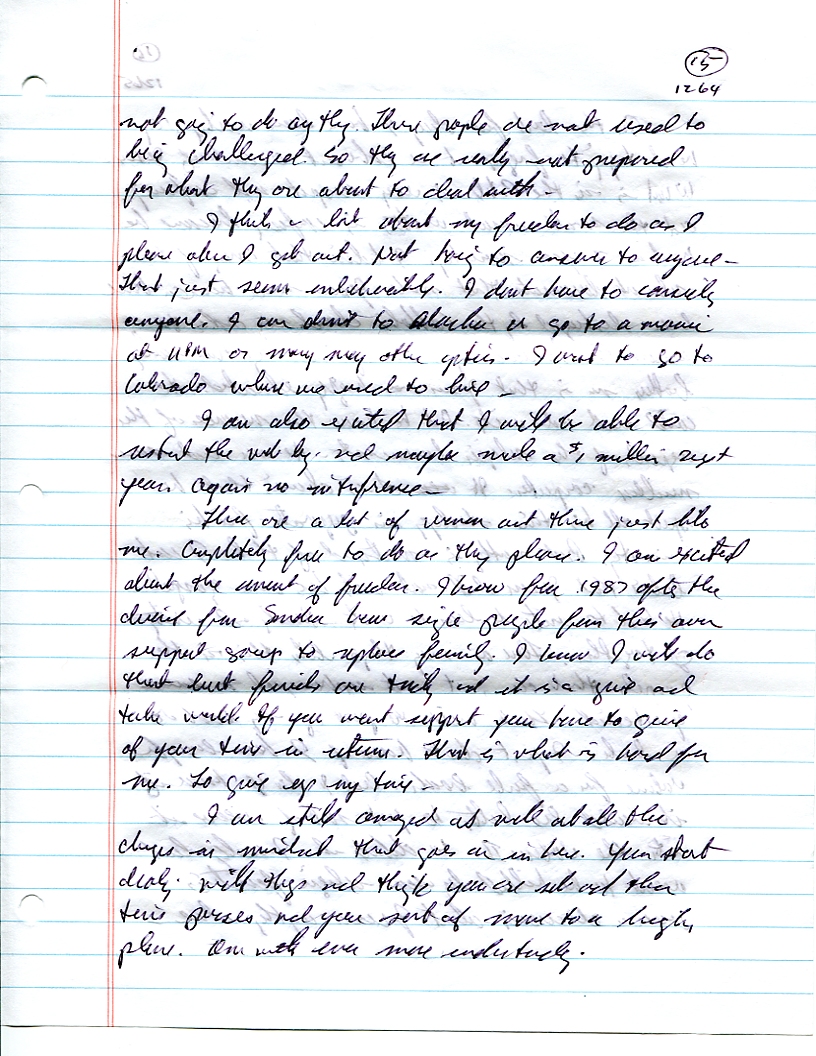 15
1264
not going to do anything. These people are not used to
being challenged. So they are really not prepared
for what they are about to deal with -
I think a lot about my freedom to do as I
please when I get out. Not having to answer to anyone -
That just seems unbelievable. I don't have to consider
anyone. I can drive to Alaska or go to a movie
at 11PM or many many other options. I want to go to
Colorado where we used to live -
I am also excited that I will be able to
restart the and maybe make a $1 million next
year. Again no interference -
There are a lot of women out there just like
me. Completely free to do as they please. I am excited
about the of freedom. I know from 1987 after the
divorce from Sandra how single people form their own
support group to replace family. I know I will do
that but friends are and it is a give and
take world. If you want support you have to give
of your time in return. That is what is hard for
me. To give up my time -
I am still amazed as well at all the
changes in mindset that goes on in here. You start
dealing with things and think you are set and then
time passes and you sort of move to a higher
plane. One with even more understanding.